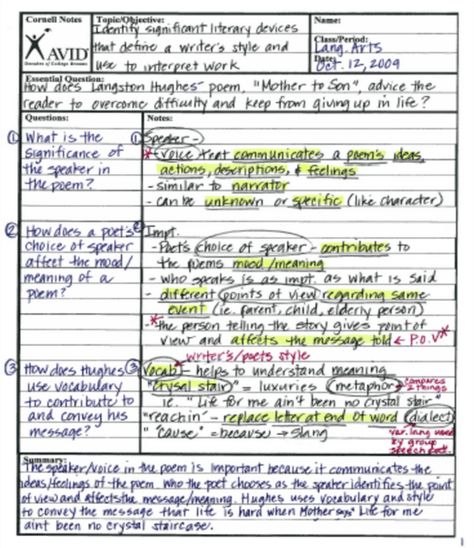 Cornell Notes
Topic/Objective:
Name:
Identify significant literary devices
that define a writer's style and
use to interpret work
AVID
Decades of College Dreams
Class/Period:
Lang. Arts
Date:
Oct. 12, 2009
Essential Question:
How does Langston Hughes' poem, "Mother to Son", advice the
reader to overcome difficulty and keep from giving up in life?
Questions:
Notes:
① What is the
significance of
the speaker in
the poem?
① Speaker -
* voice that communicates a poem's ideas,
actions, descriptions, & feelings
- similar to narrator
- can be unknown or specific (like character)
② How does a poet's
choice of speaker
affect the mood/
meaning of a
poem?
② Impt.
- Poet's choice of speaker - contributes to
the poems mood/meaning
- who speaks is as impt. as what is said
- different points of view regarding same
event (ie. parent, child, elderly person)
* - the person telling the story gives point of
view and affects the message told ← P.O.V *
writer's/poets style
③ How does Hughes
use vocabulary
to contribute to
and convey his
message?
③ Vocab - helps to understand meaning
"crysal stair" = luxuries (metaphor) ← compares
2 things
ie. "Life for me ain't been no crystal stair"
"reachin" - replace letter at end of word (dialect)
" 'cause" = because → slang
var. lang used
by group
speech pat.
Summary:
The speaker/voice in the poem is important because it communicates the
ideas/feelings of the poem. Who the poet chooses as the speaker identifies the point
of view and affects the message/meaning. Hughes uses vocabulary and style
to convey the message that life is hard when Mother says "Life for me
aint been no crystal staircase.